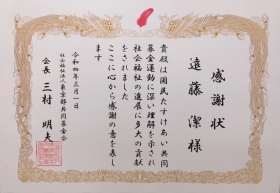 感謝状
遠藤潔様
貴殿は国民たすけあい共同
募金運動に深い理解を示され
社会福祉の進展に多大の貢献
をされました
ここに心から感謝の意を表し
ます
令和四年三月一日
社会福祉法人東京都共同募金会
会長 三村明夫